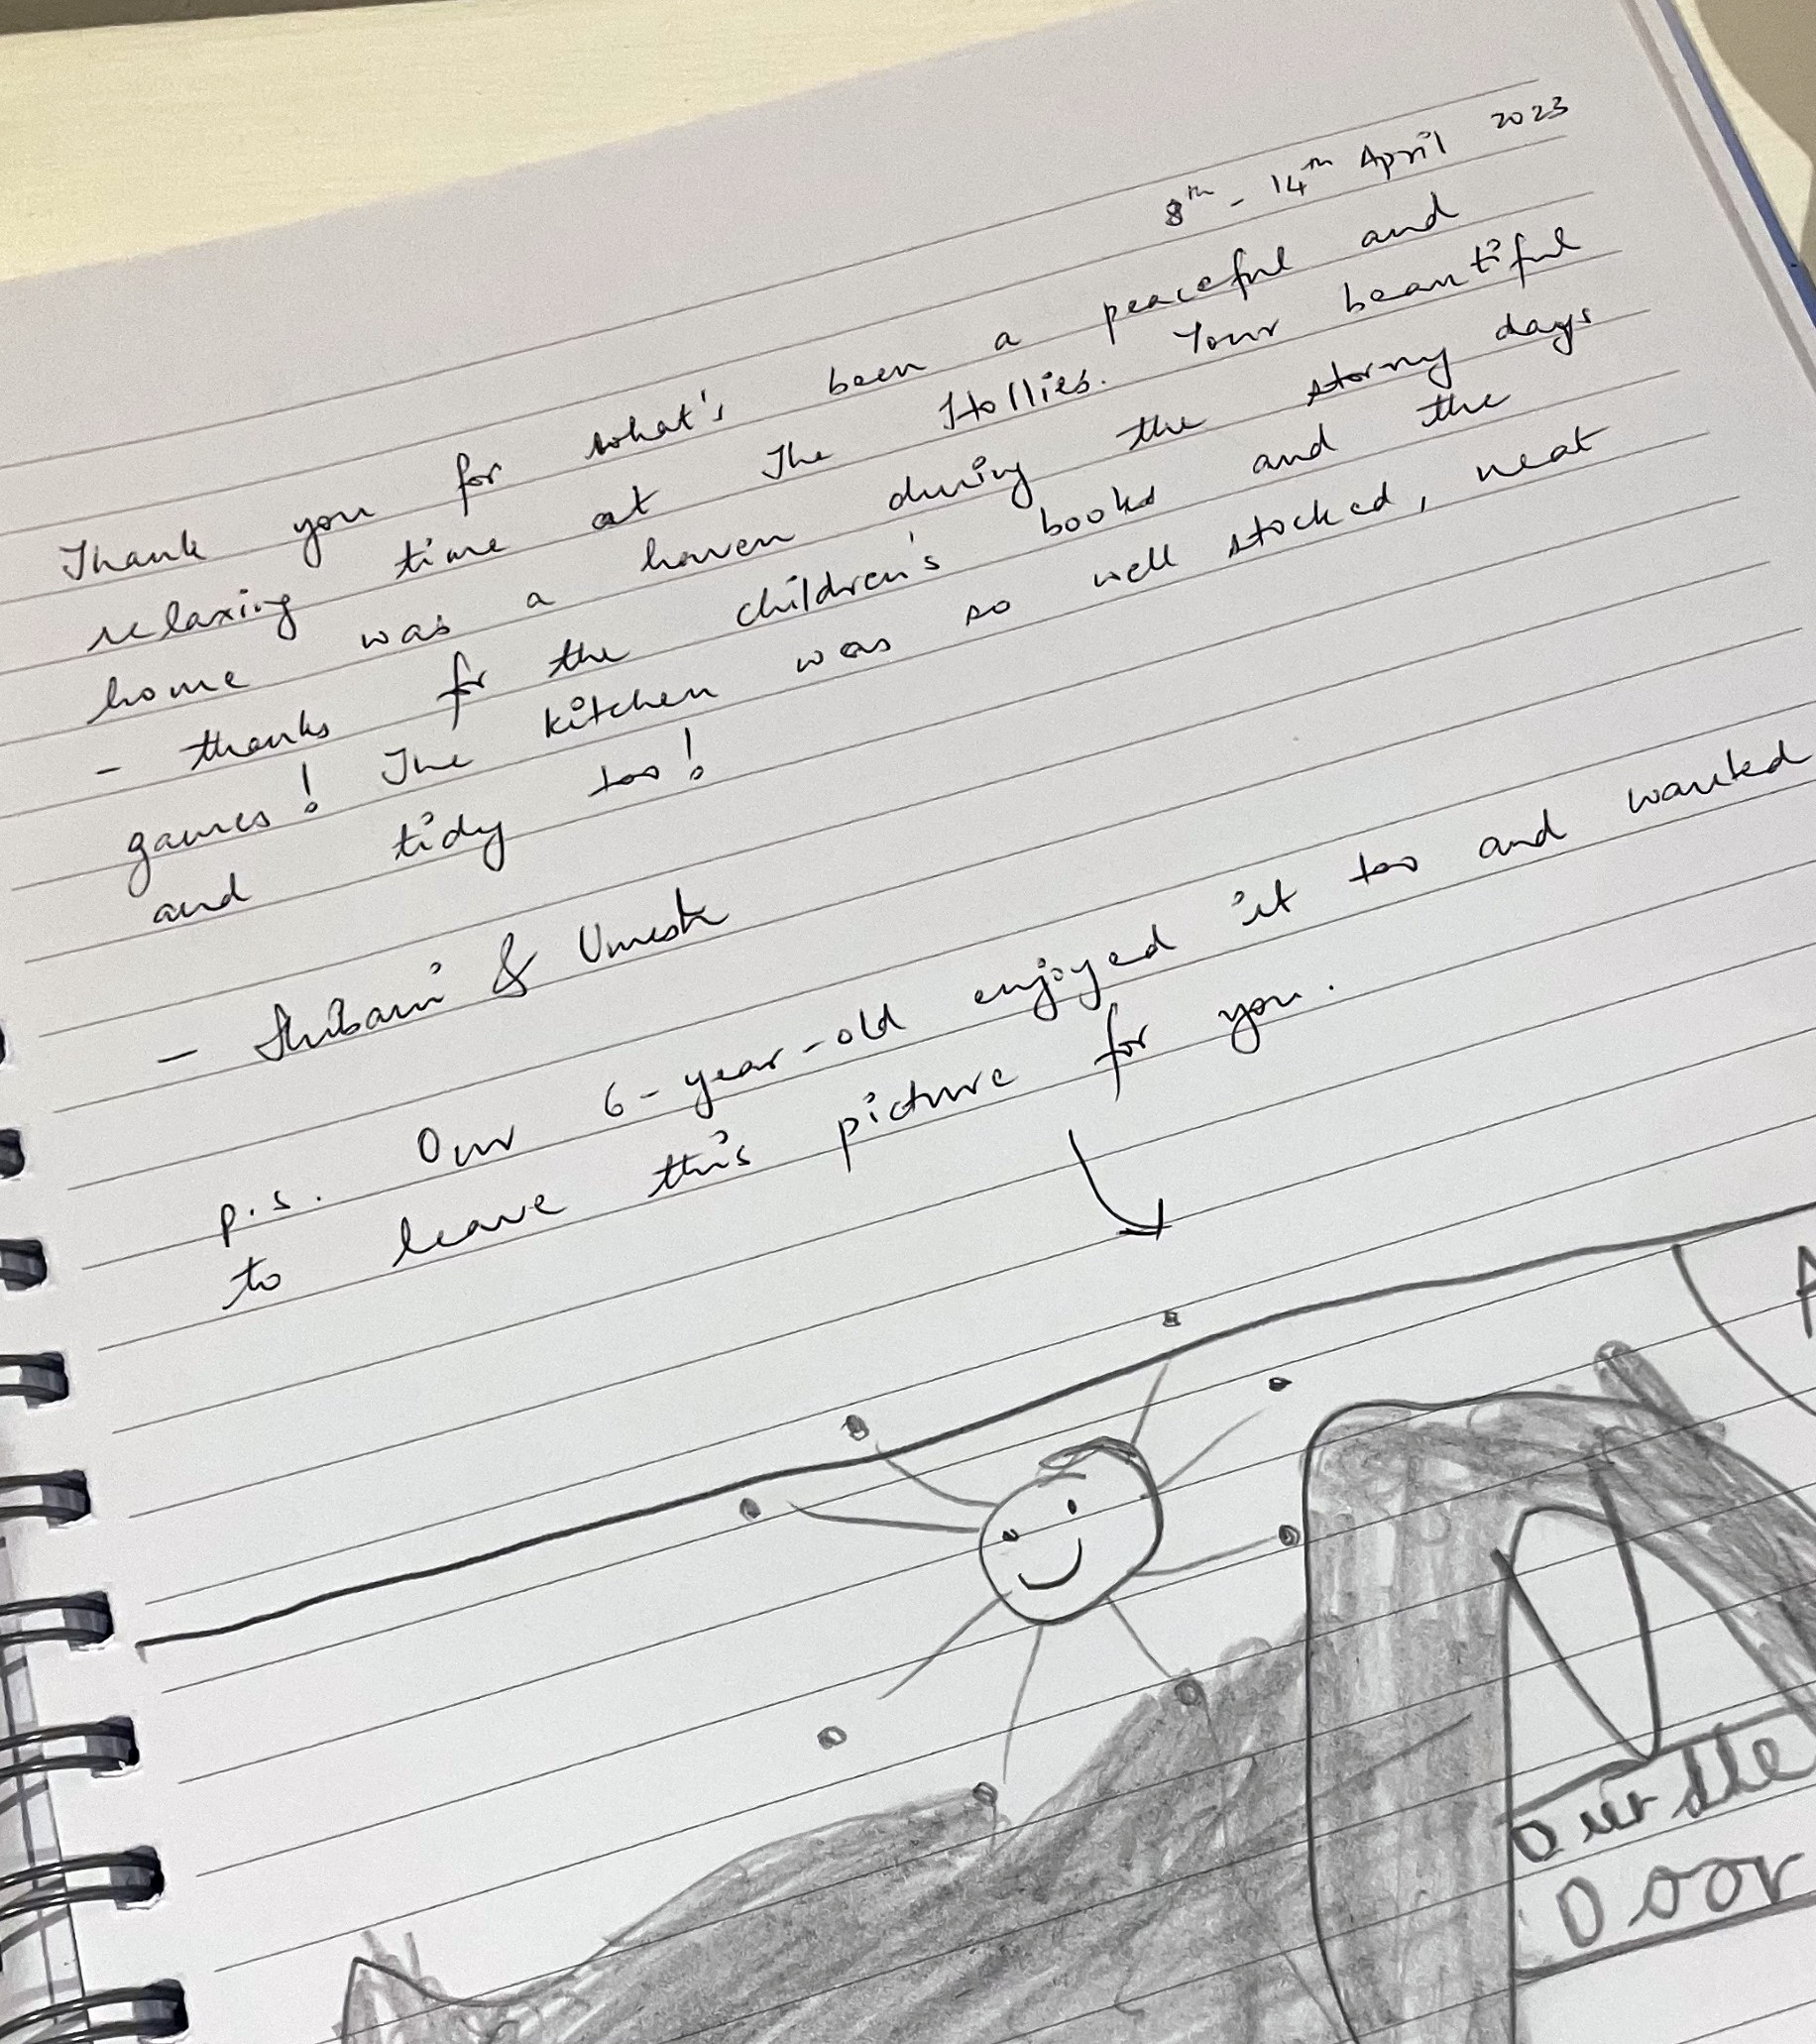 8th - 14th April 2023
Thank you for what's been a peaceful and
relaxing time at The Hollies. Your beautiful
home was a haven during the stormy days
- thanks for the children's books and the
games! The kitchen was so well stocked, neat
and tidy too!
- Shibani & Umesh
p.s. Our 6-year-old enjoyed it too and wanted
to leave this picture for you.
A
Durdle
Door